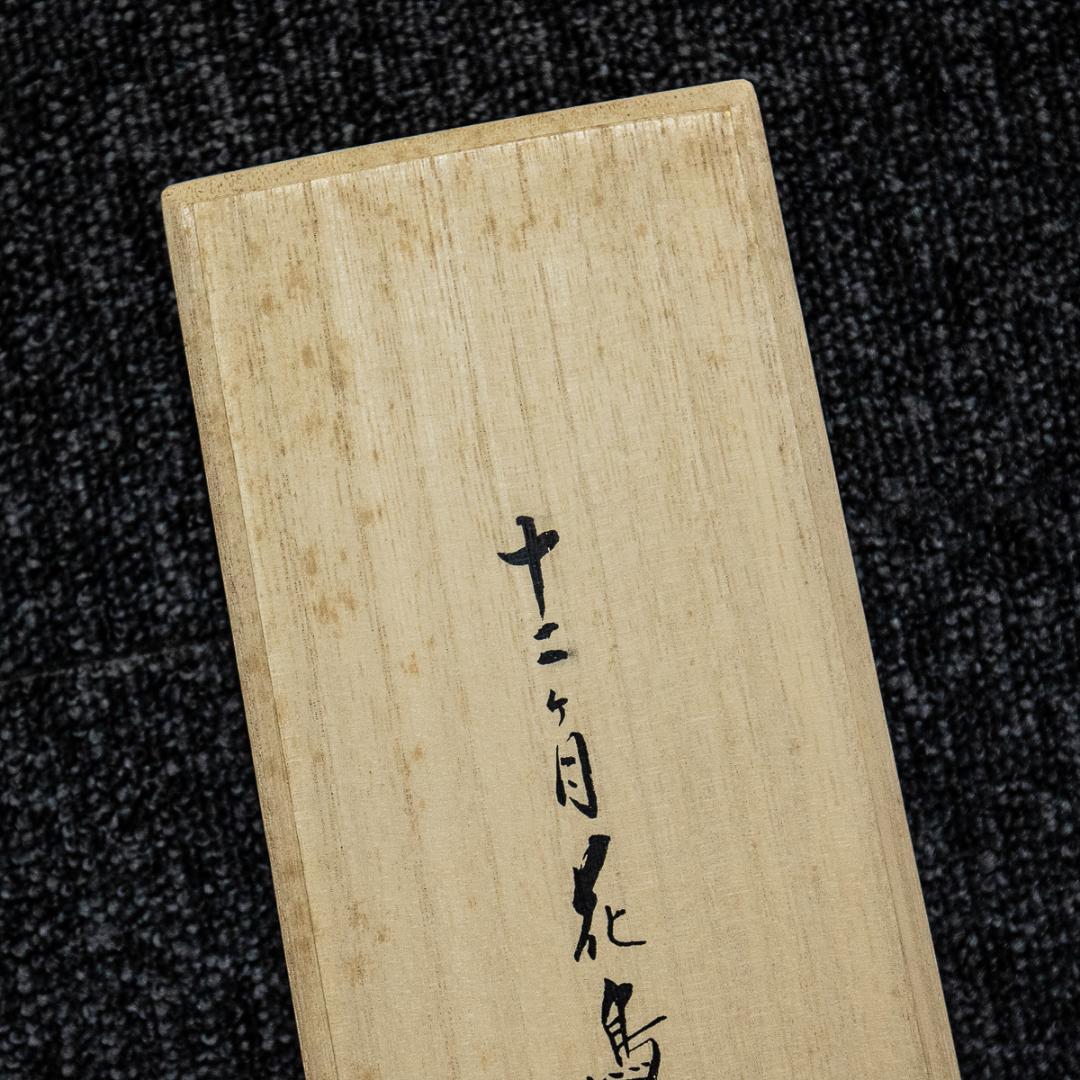 十二ヶ月花鳥